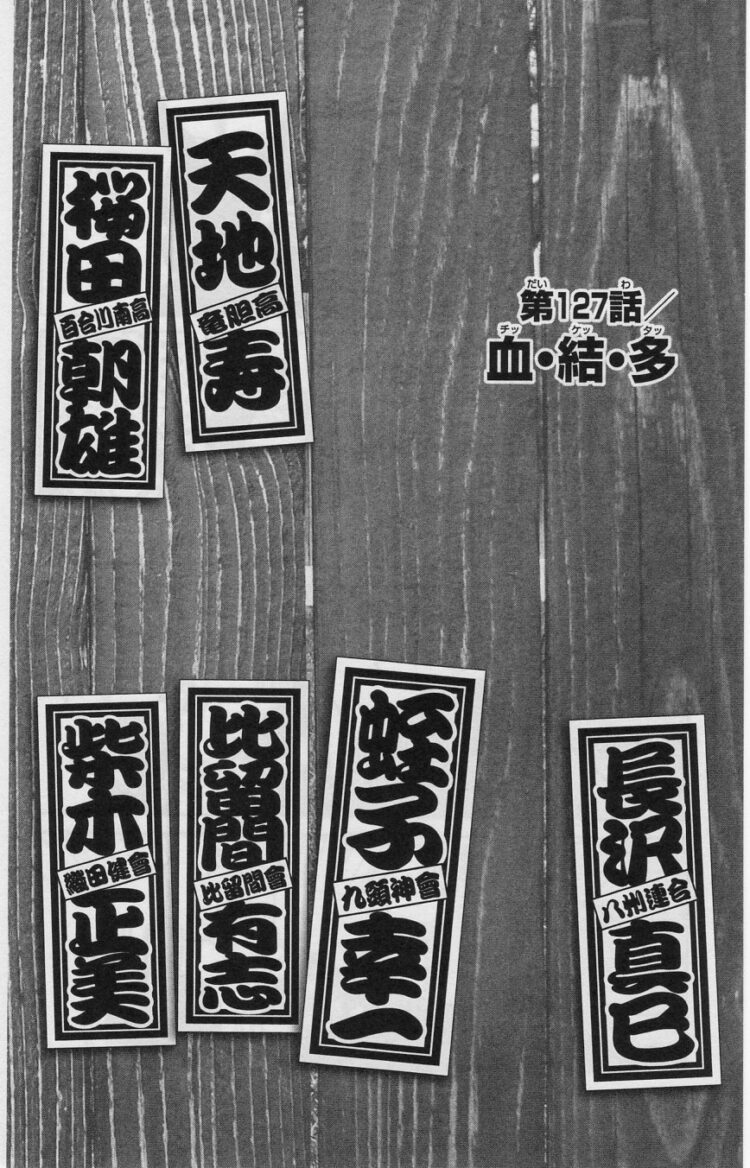 第127話／
血・結・多
だい わ
チッ ケッ タッ
天地寿
竜胆高
桜田朝雄
百合川南高
長沢真巳
八州連合
蛭子幸一
九頭神會
比留間有志
比留間會
柴木正美
織田健會